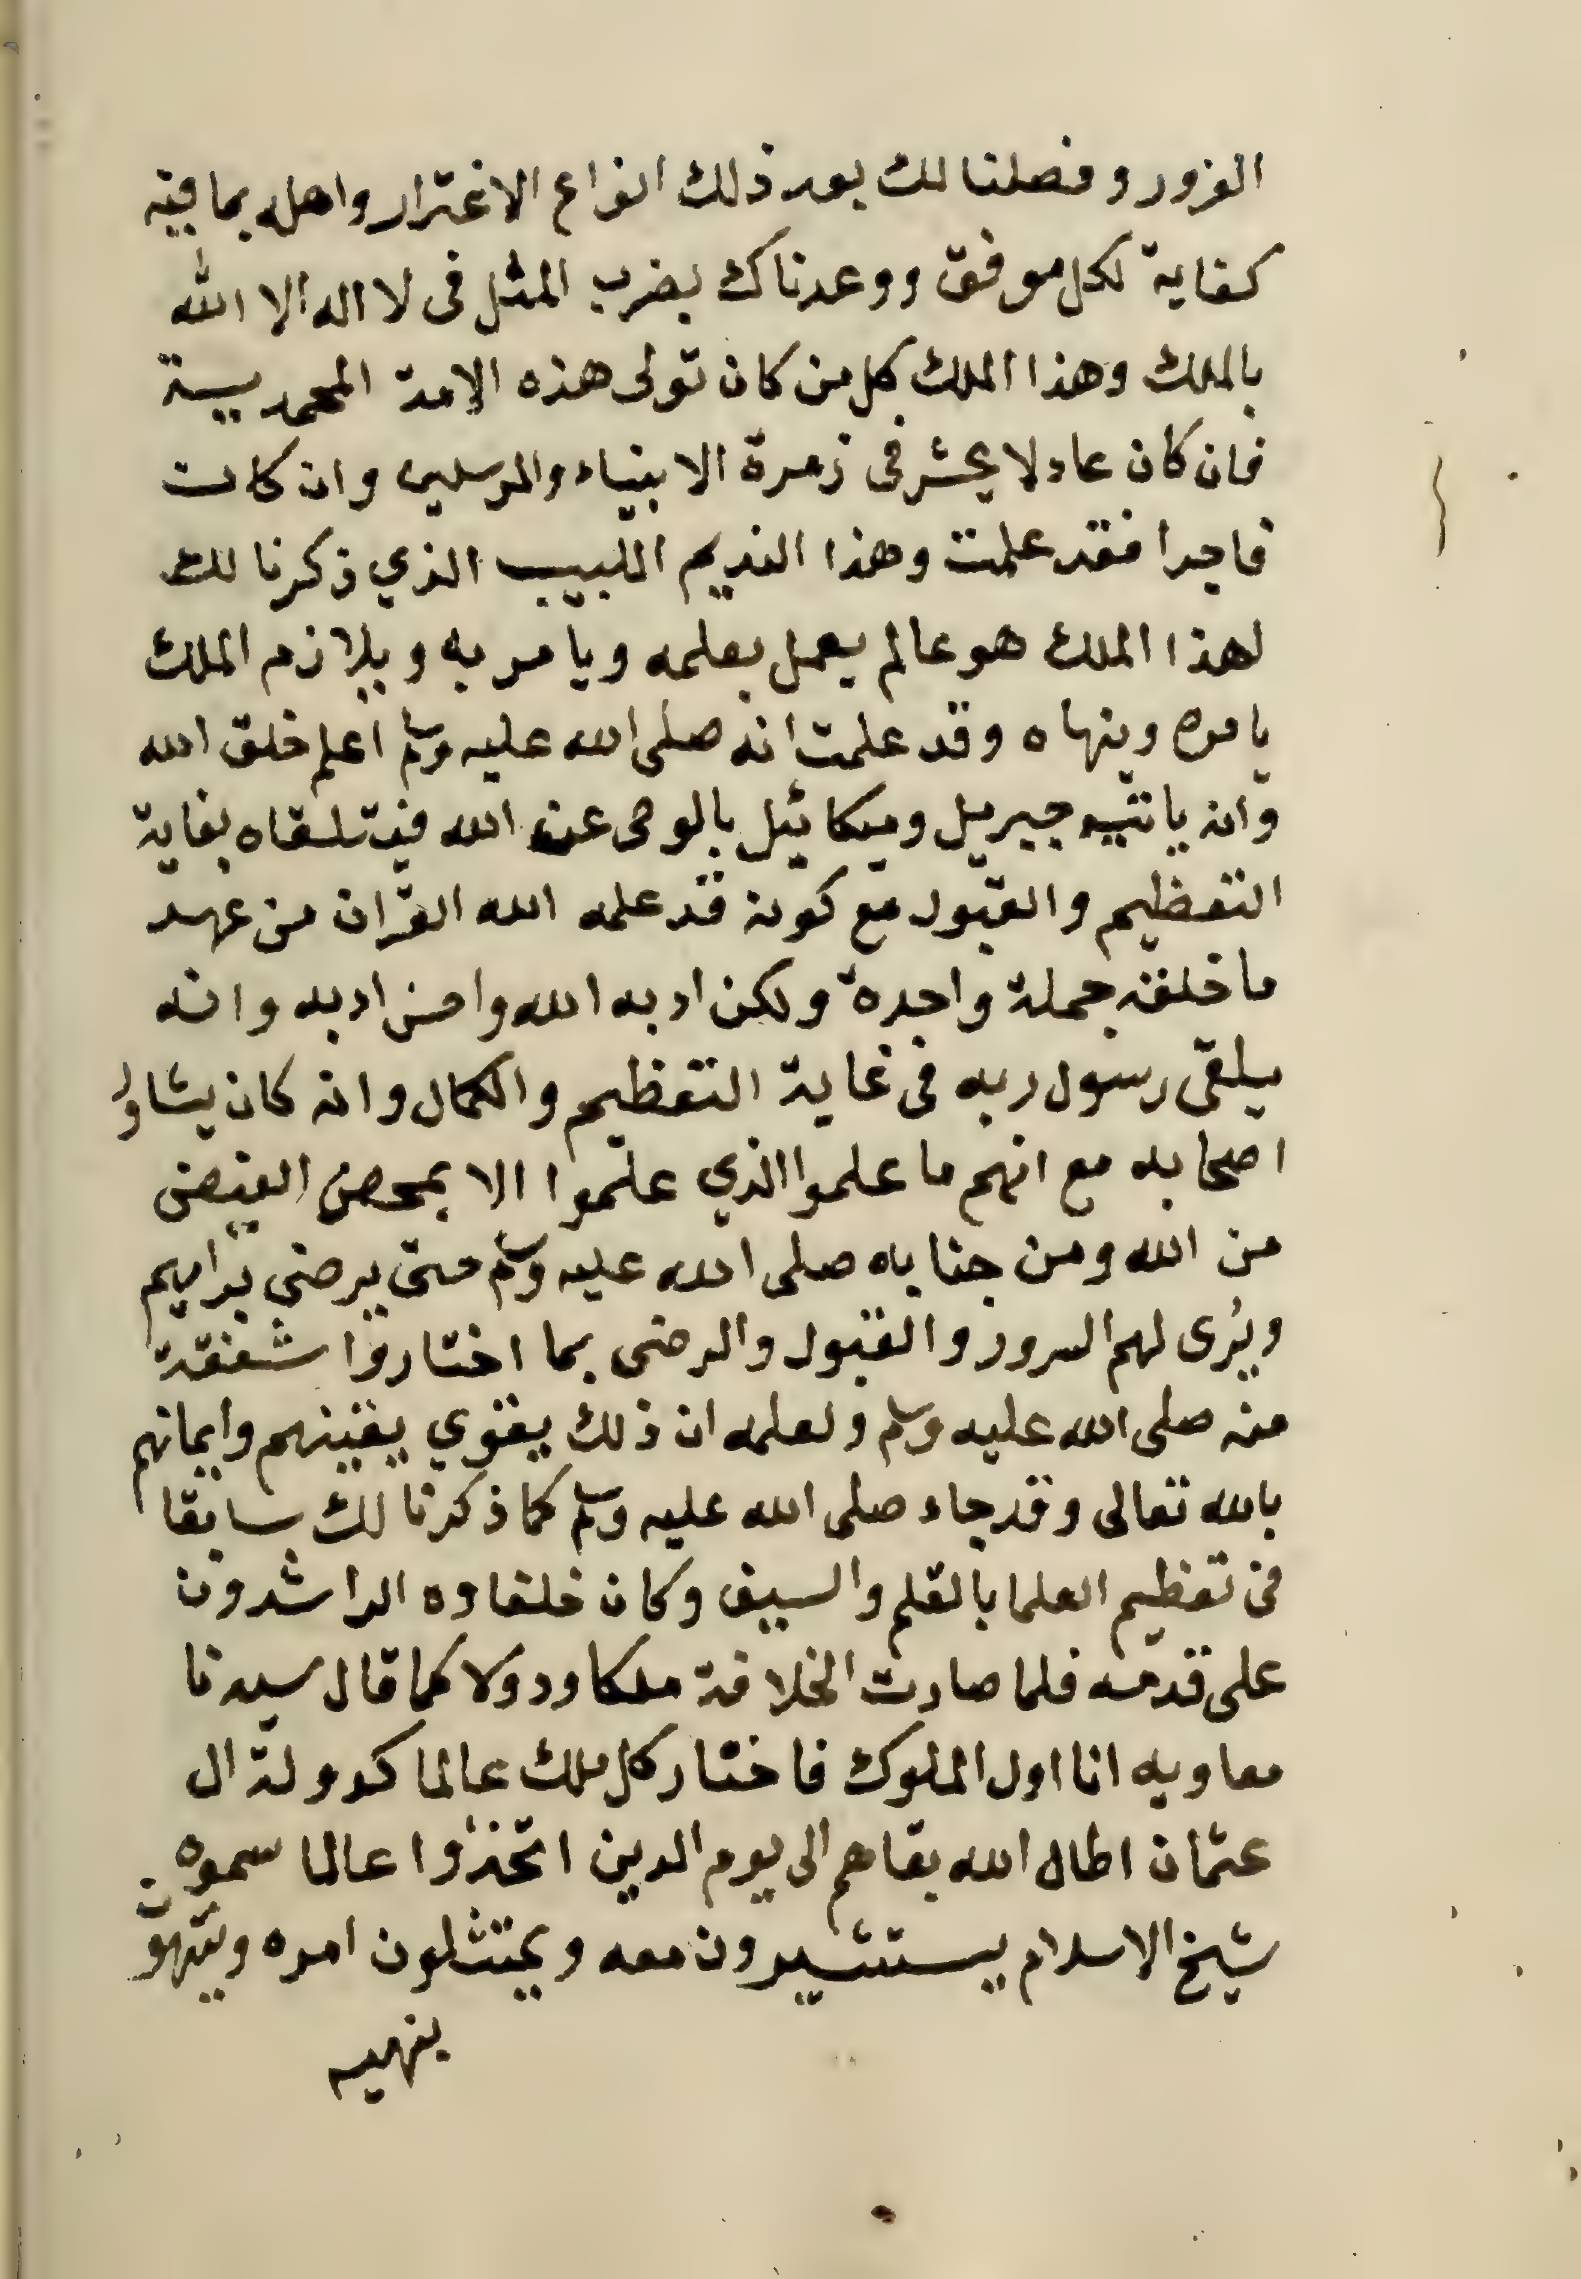 الغرور وفصلنا لك بعد ذلك انواع الاغترار واهله بما فيه
كفاية لكل موفق ووعدناك بضرب المثل فى لا اله الا الله
بالملك وهذا الملك كل من كان تولى هذه الامة المحمدية
فان كان عادلا يحشر فى زمرة الانبياء والمرسلين وان كان
فاجرا فقد علمت وهذا النديم اللبيب الذي ذكرنا لك
لهذا الملك هو عالم يعمل بعلمه ويامر به ويلازم الملك
يامره وينهاه وقد علمت انه صلى الله عليه وسلم اعلم خلق الله
وانه ياتيه جبريل وميكائيل بالوحى عن الله فيتلقاه بغاية
التعظيم والقبول مع كونه قد علمه الله القران من عهد
ما خلقه جملة واحدة ولكن ادبه الله واحسن ادبه وانه
يلقى رسول ربه فى غاية التعظيم والكمال وانه كان يشاور
اصحابه مع انهم ما علموا الذي علموا الا بمحض الفيض
من الله ومن جنابه صلى الله عليه وسلم حتى يرضى برايهم
ويُرى لهم السرور والقبول والرضى بما اختاروا شفقة
منه صلى الله عليه وسلم ولعلمه ان ذلك يقوي يقينهم وايمانهم
بالله تعالى وقد جاء صلى الله عليه وسلم كما ذكرنا لك سابقا
فى تعظيم العلما بالقلم والسيف وكان خلفاوه الراشدون
على قدمه فلما صارت الخلافة ملكا ودولا كما قال سيدنا
معاويه انا اول الملوك فاختار كل ملك عالما كدولة ال
عثمان اطال الله بقاهم الى يوم الدين اتخذوا عالما سموه
شيخ الاسلام يستشيرون معه ويمتثلون امره وينتهون
بنهيه